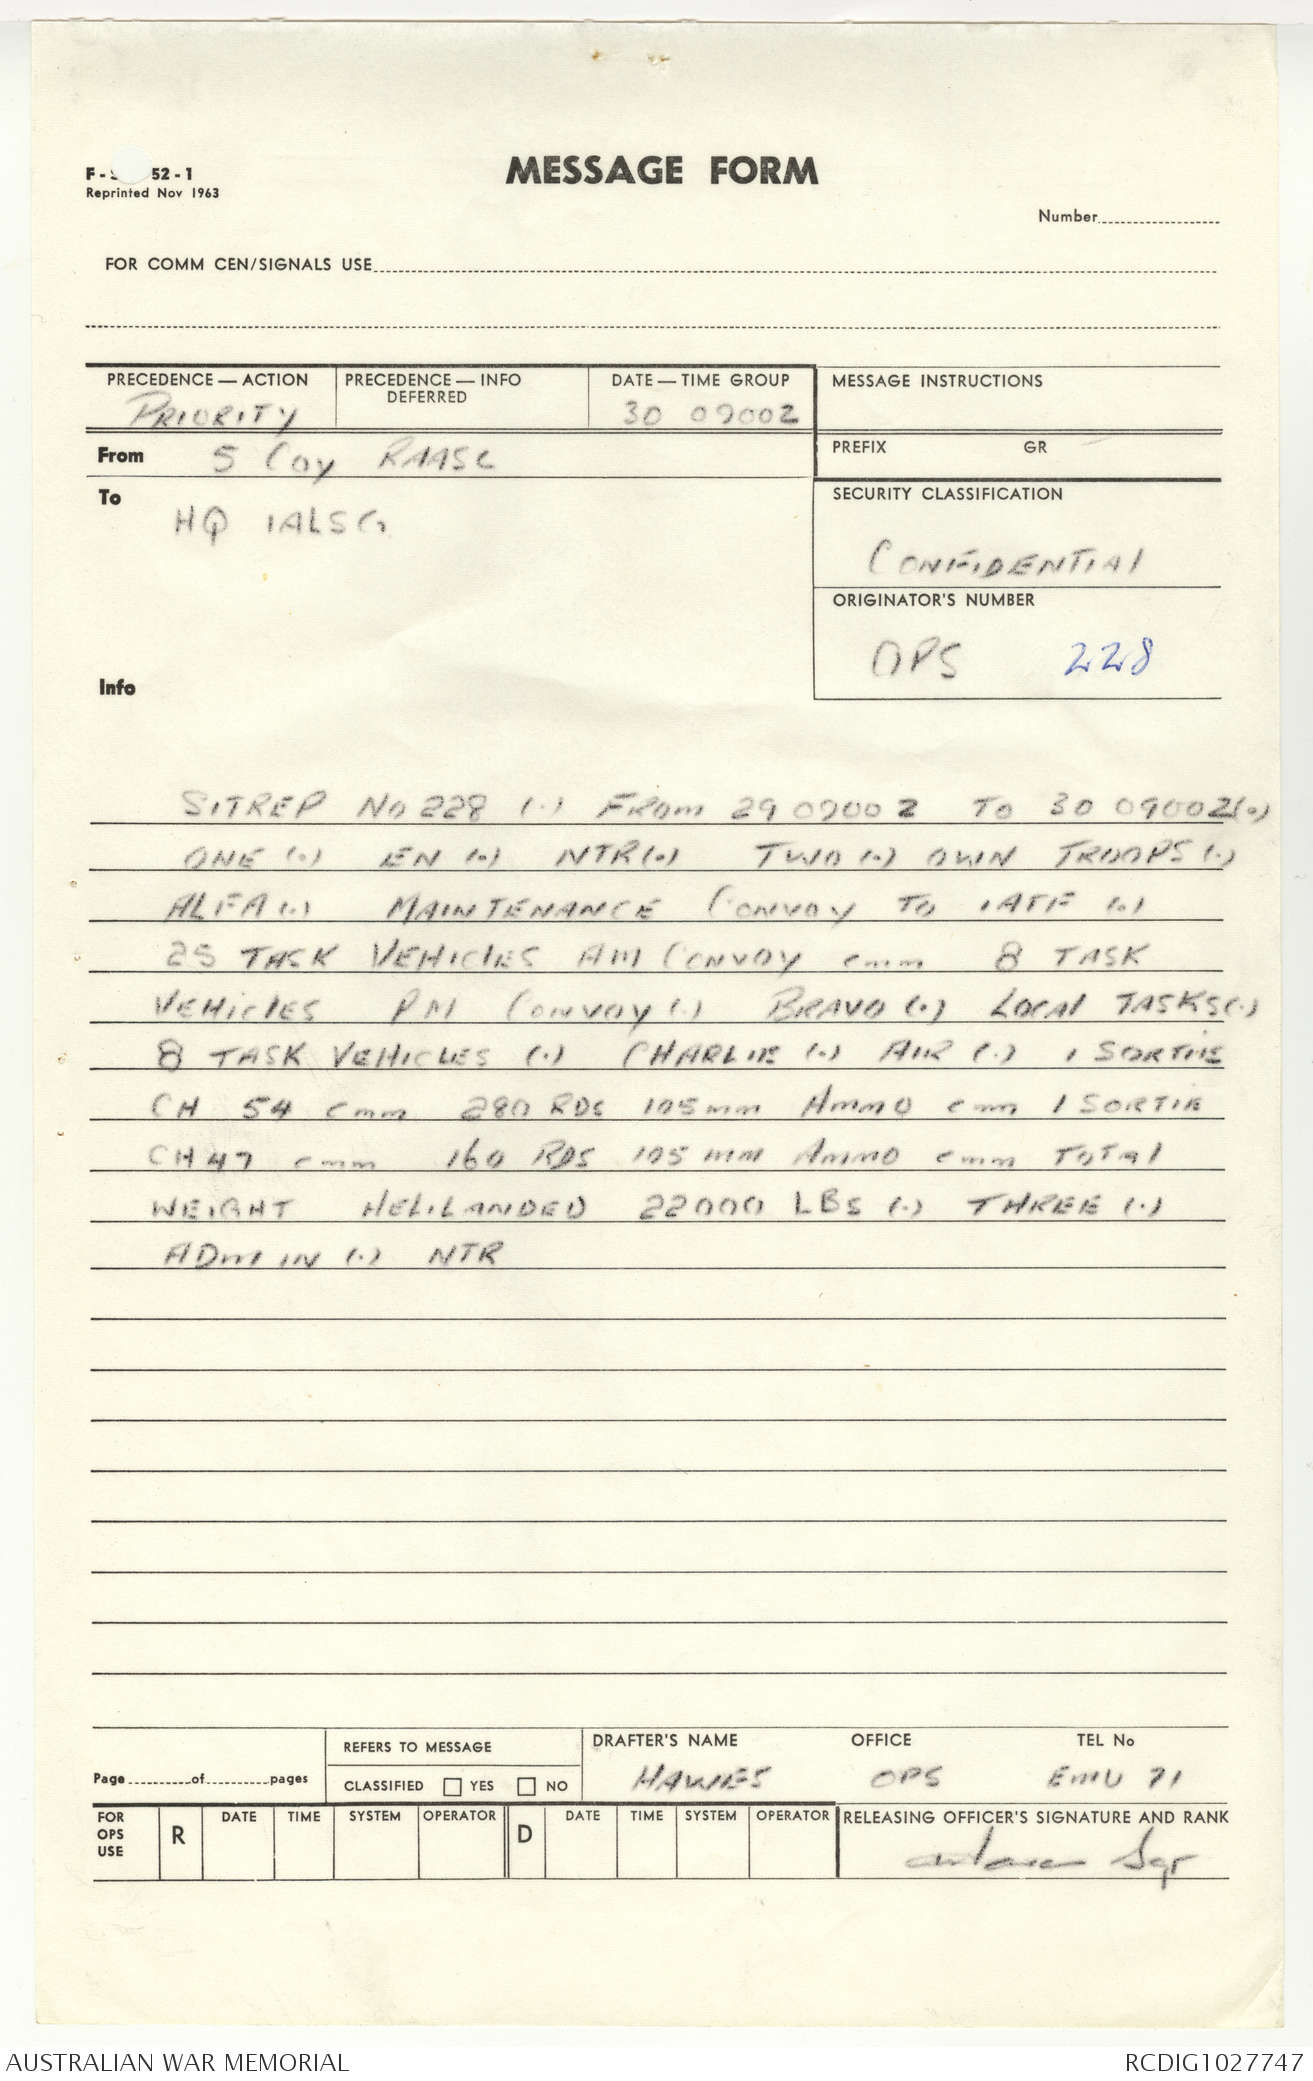 MESSAGE FORM
52-1
Reprinted Nov 1963
Number
FOR COMM CEN/SIGNALS USE
PRECEDENCE — ACTION
PRIORITY
PRECEDENCE — INFO
DEFERRED
DATE — TIME GROUP
30 0900Z
MESSAGE INSTRUCTIONS
From 5 Coy RAASC
PREFIX GR
To
HQ 1ALSG
SECURITY CLASSIFICATION
CONFIDENTIAL
ORIGINATOR'S NUMBER
OPS 228
Info
SITREP No 228 (.) FROM 29 0900Z TO 30 0900Z (.)
ONE (.) EN (.) NTR (.) TWO (.) OWN TROOPS (.)
ALFA (.) MAINTENANCE CONVOY TO 1ATF (.)
25 TASK VEHICLES AM CONVOY cmm 8 TASK
VEHICLES PM CONVOY (.) BRAVO (.) LOCAL TASKS (.)
8 TASK VEHICLES (.) CHARLIE (.) AIR (.) 1 SORTIE
CH 54 cmm 280 RDS 105mm AMMO cmm 1 SORTIE
CH 47 cmm 160 RDS 105 mm AMMO cmm TOTAL
WEIGHT HELILANDED 22000 LBS (.) THREE (.)
ADMIN (.) NTR
Page of pages
REFERS TO MESSAGE
CLASSIFIED YES NO
DRAFTER'S NAME OFFICE TEL No
HAWES OPS EMU 71
FOR OPS USE R DATE TIME SYSTEM OPERATOR D DATE TIME SYSTEM OPERATOR
RELEASING OFFICER'S SIGNATURE AND RANK
Sgt
AUSTRALIAN WAR MEMORIAL
RCDIG1027747